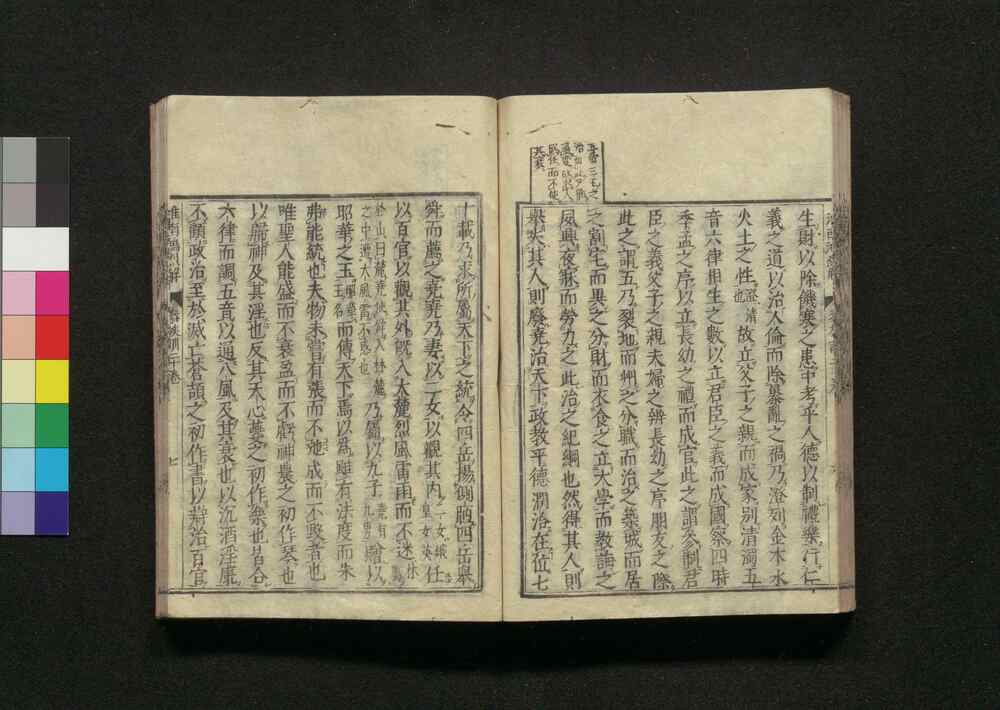 生財以除饑寒之患中考乎人德以制禮樂行仁
義之道以治人倫而除暴亂之禍乃澄列金木水
火土之性澄清也故立父子之親而成家別清濁五
音六律相生之數以立君臣之義而成國察四時
季孟之序以立長幼之禮而成官此之謂參制君
臣之義父子之親夫婦之辨長幼之序朋友之際
此之謂五乃裂地而州之分職而治之築城而居
之割宅而異之分財而衣食之立大學而教誨之
夙興夜寐而勞力之此治之紀綱也然得其人則
舉失其人則廢堯治天下政教平德潤洽在位七
十載乃求所屬天下之統令四岳揚側陋四岳舉
舜而薦之堯堯乃妻以二女以觀其內任
以百官以觀其外既入大麓烈風雷雨而不迷
之中遭大風雷不惑也乃屬以九子贈以
耶華之玉而傳天下焉以為雖有法度而朱
弗能統也夫物未嘗有張而不弛成而不毀者也
唯聖人能盛而不衰盈而不虧神農之初作琴也
以歸神及其淫也反其天心夔之初作樂也皆合
六律而調五音以通八風及其衰也以沉酒淫康
不顧政治至於滅亡蒼頡之初作書以辯治百官